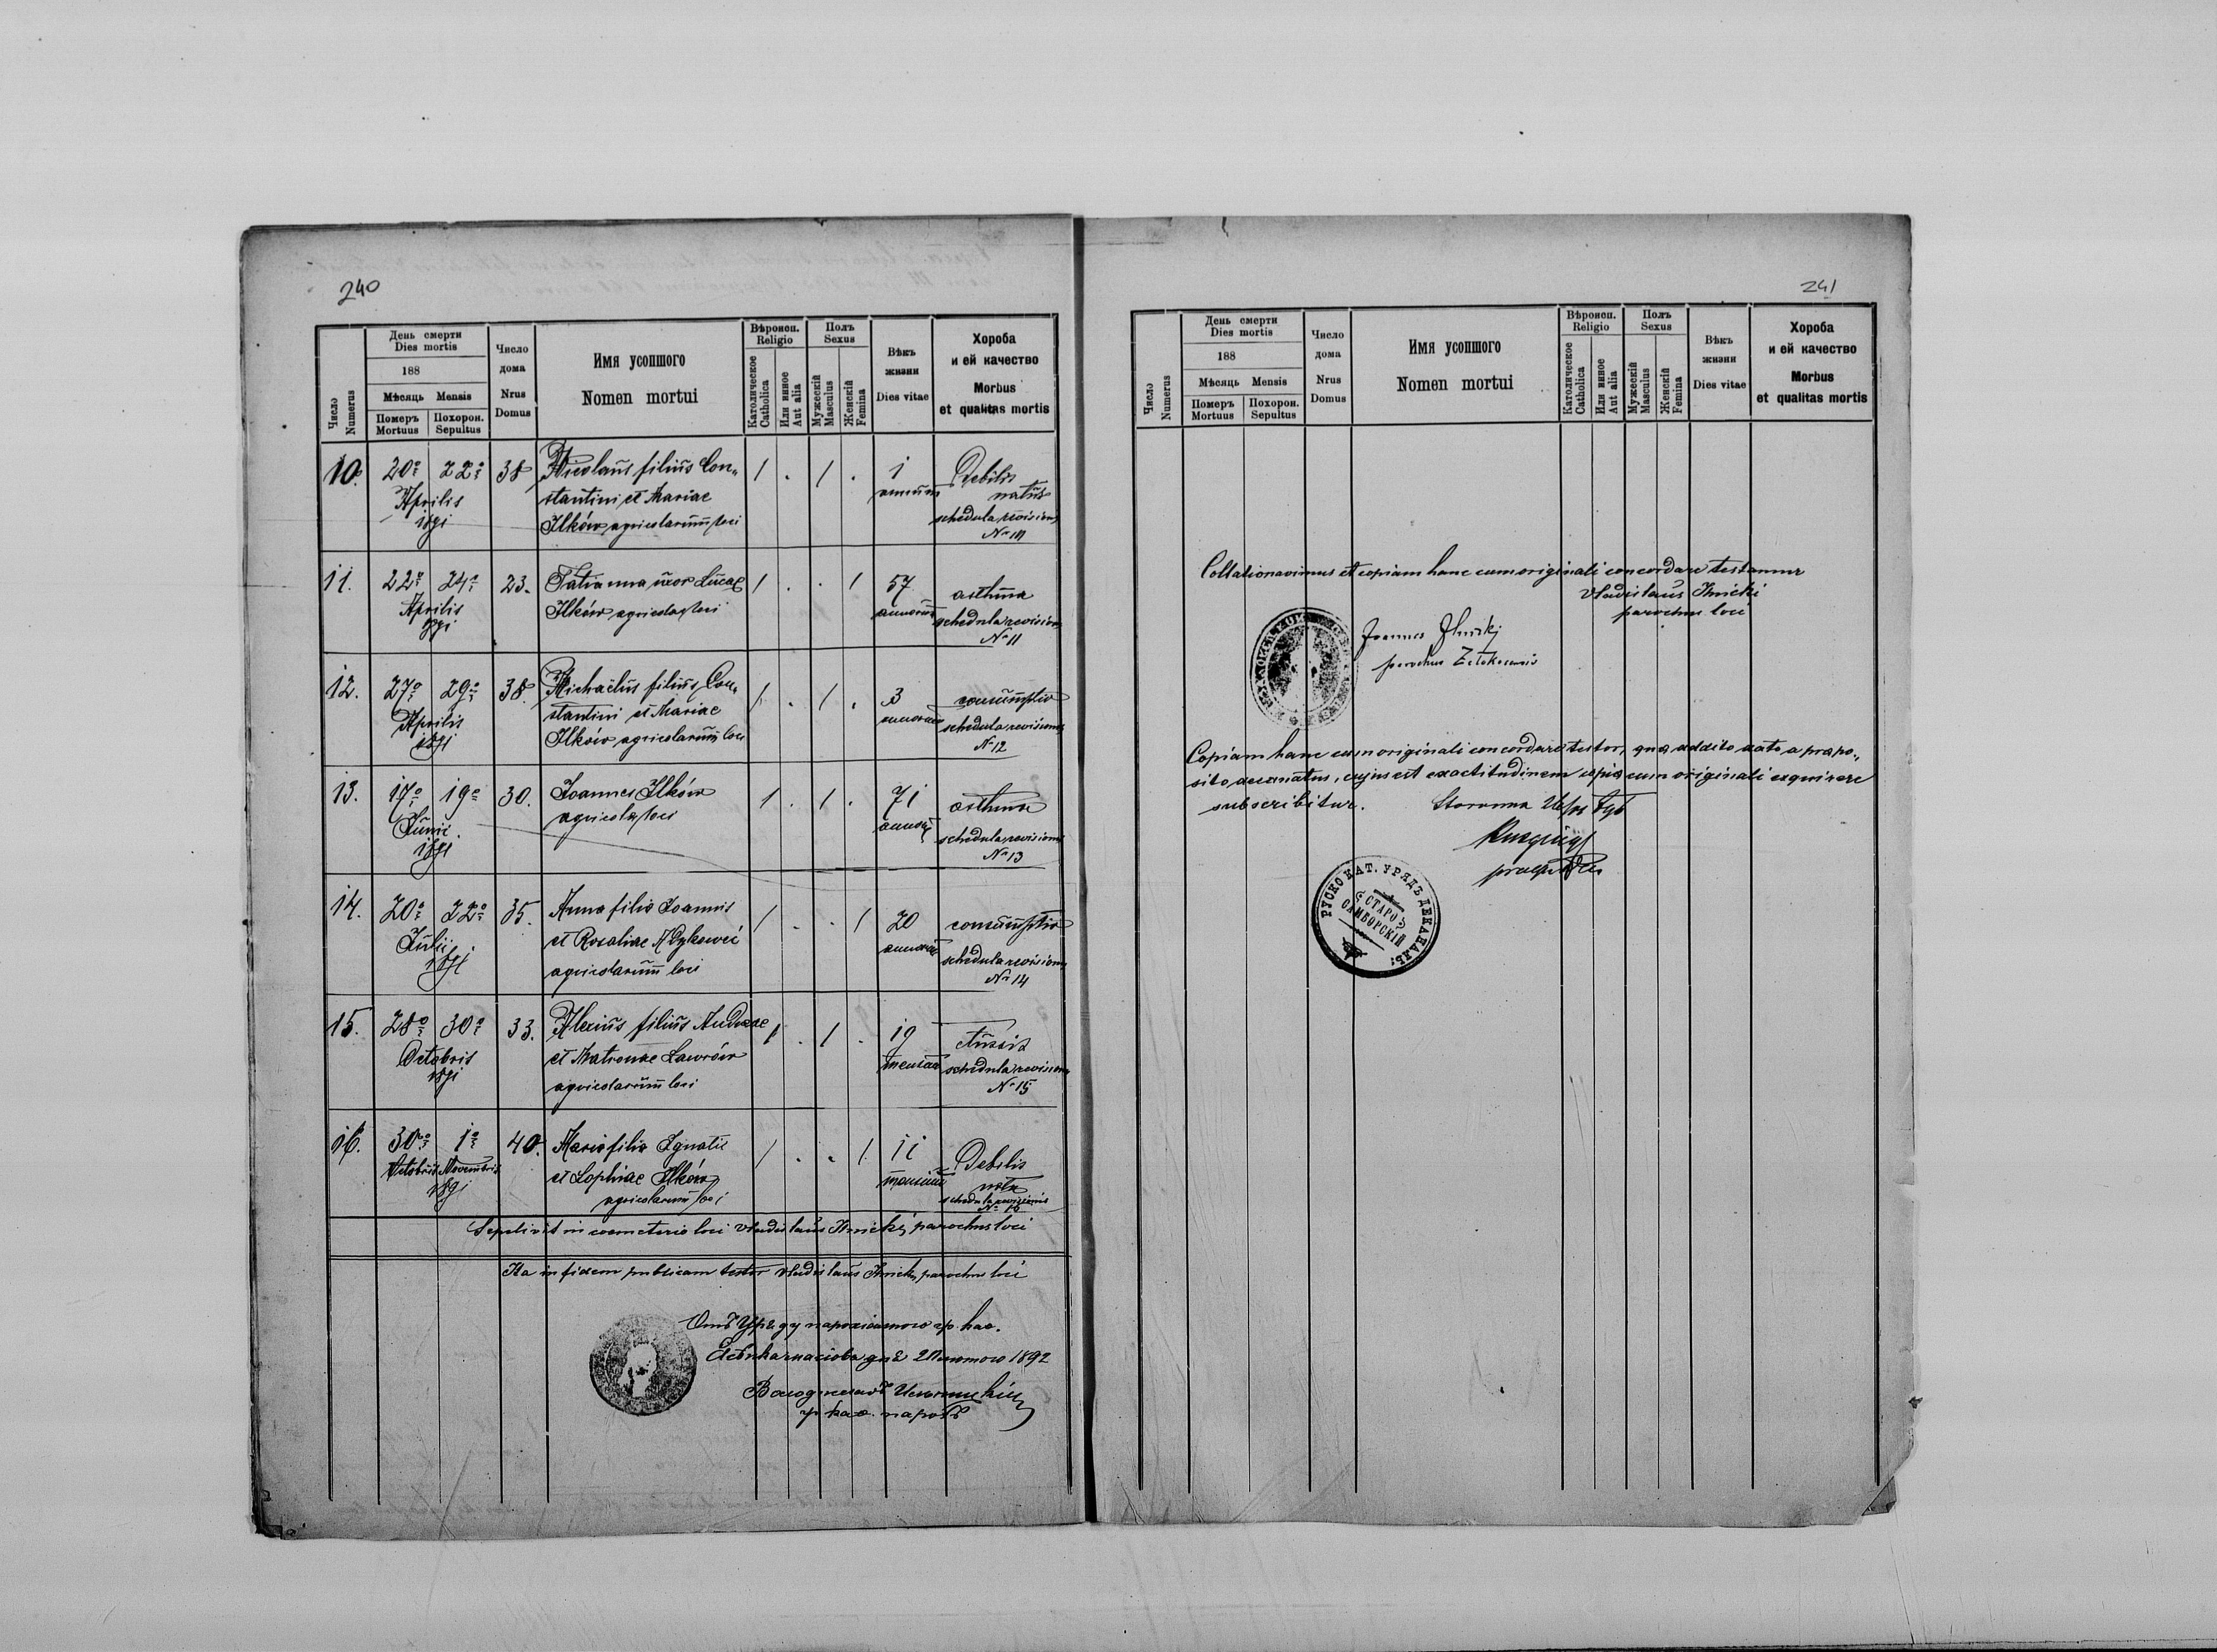 240
Число Numerus
День смерти
Dies mortis
188
Мѣсяць Mensis
Померъ Mortuus
Похорон. Sepultus
Число дома
Nrus Domus
Имя усопшого
Nomen mortui
Вѣроисп. Religio
Католическое Catholica
Или инное Aut alia
Полъ Sexus
Мужескій Masculus
Женскій Femina
Вѣкъ жизни
Dies vitae
Хороба
и ей качество
Morbus
et qualitas mortis
10. 20º 22º Aprilis 1891 38 Nicolaus filius Con„
stantini et Mariae
Ilków agricolarum loci
1 . 1 . 1 annum
Debilis natus
schedula revisionis
Nº 10
11. 22º 24º Aprilis 1891 23. Tatianna uxor Lucae
Ilków agricolae loci
1 . . 1 57 annorum
asthma
schedula revisionis
Nº 11
12. 27º 29º Aprilis 1891 38. Michaelus filius Con„
stantini et Mariae
Ilków agricolarum loci
1 . 1 . 3 annorum
consumptio
schedula revisionis
Nº 12
13. 17º 19º Junii 1891 30. Joannes Ilków
agricola loci
1 . 1 . 71 annorum
asthma
schedula revisionis
Nº 13
14. 20º 22º Julii 1891 35. Anna filia Joannis
et Rosaliae
agricolarum loci
1 . . 1 20 annorum
consumptio
schedula revisionis
Nº 14
15. 28º 30º Octobris 1891 33. Alexius filius Andreae
et Matronae Lawrów
agricolarum loci
1 . 1 . 19 mensium
tussis
schedula revisionis
Nº 15
16. 30º Octobris 1º Novembris 1891 40. Maria filia Ignatii
et Sophiae Ilków
agricolarum loci
1 . . 1 11 mensium
Debilis nata
schedula revisionis
Nº 16
Sepelivit in coemeterio loci Vladislaus Ilnicki parochus loci
Ita in fidem publicam testor Vladislaus Ilnicki parochus loci
Отъ Уряду парохіального гр. кат.
дня 2 Лютого 1892
Володиславъ Ильницкій
гр. кат. парохъ
241
Число Numerus
День смерти
Dies mortis
188
Мѣсяць Mensis
Померъ Mortuus
Похорон. Sepultus
Число дома
Nrus Domus
Имя усопшого
Nomen mortui
Вѣроисп. Religio
Католическое Catholica
Или инное Aut alia
Полъ Sexus
Мужескій Masculus
Женскій Femina
Вѣкъ жизни
Dies vitae
Хороба
и ей качество
Morbus
et qualitas mortis
Collationavimus et copiam hanc cum originali concordare testamur
Vladislaus Ilnicki
parochus loci
Joannes
parochus
Copiam hanc cum originali concordare testor, qua addito dato a præpo„
sito decanatus, cujus est exactitudinem copiæ cum originali exquirere
subscribitur.
РУСКО КАТ. УРЯДЪ ДЕКАНАЛЬ:
СТАРО
САМБОРСКІЙ